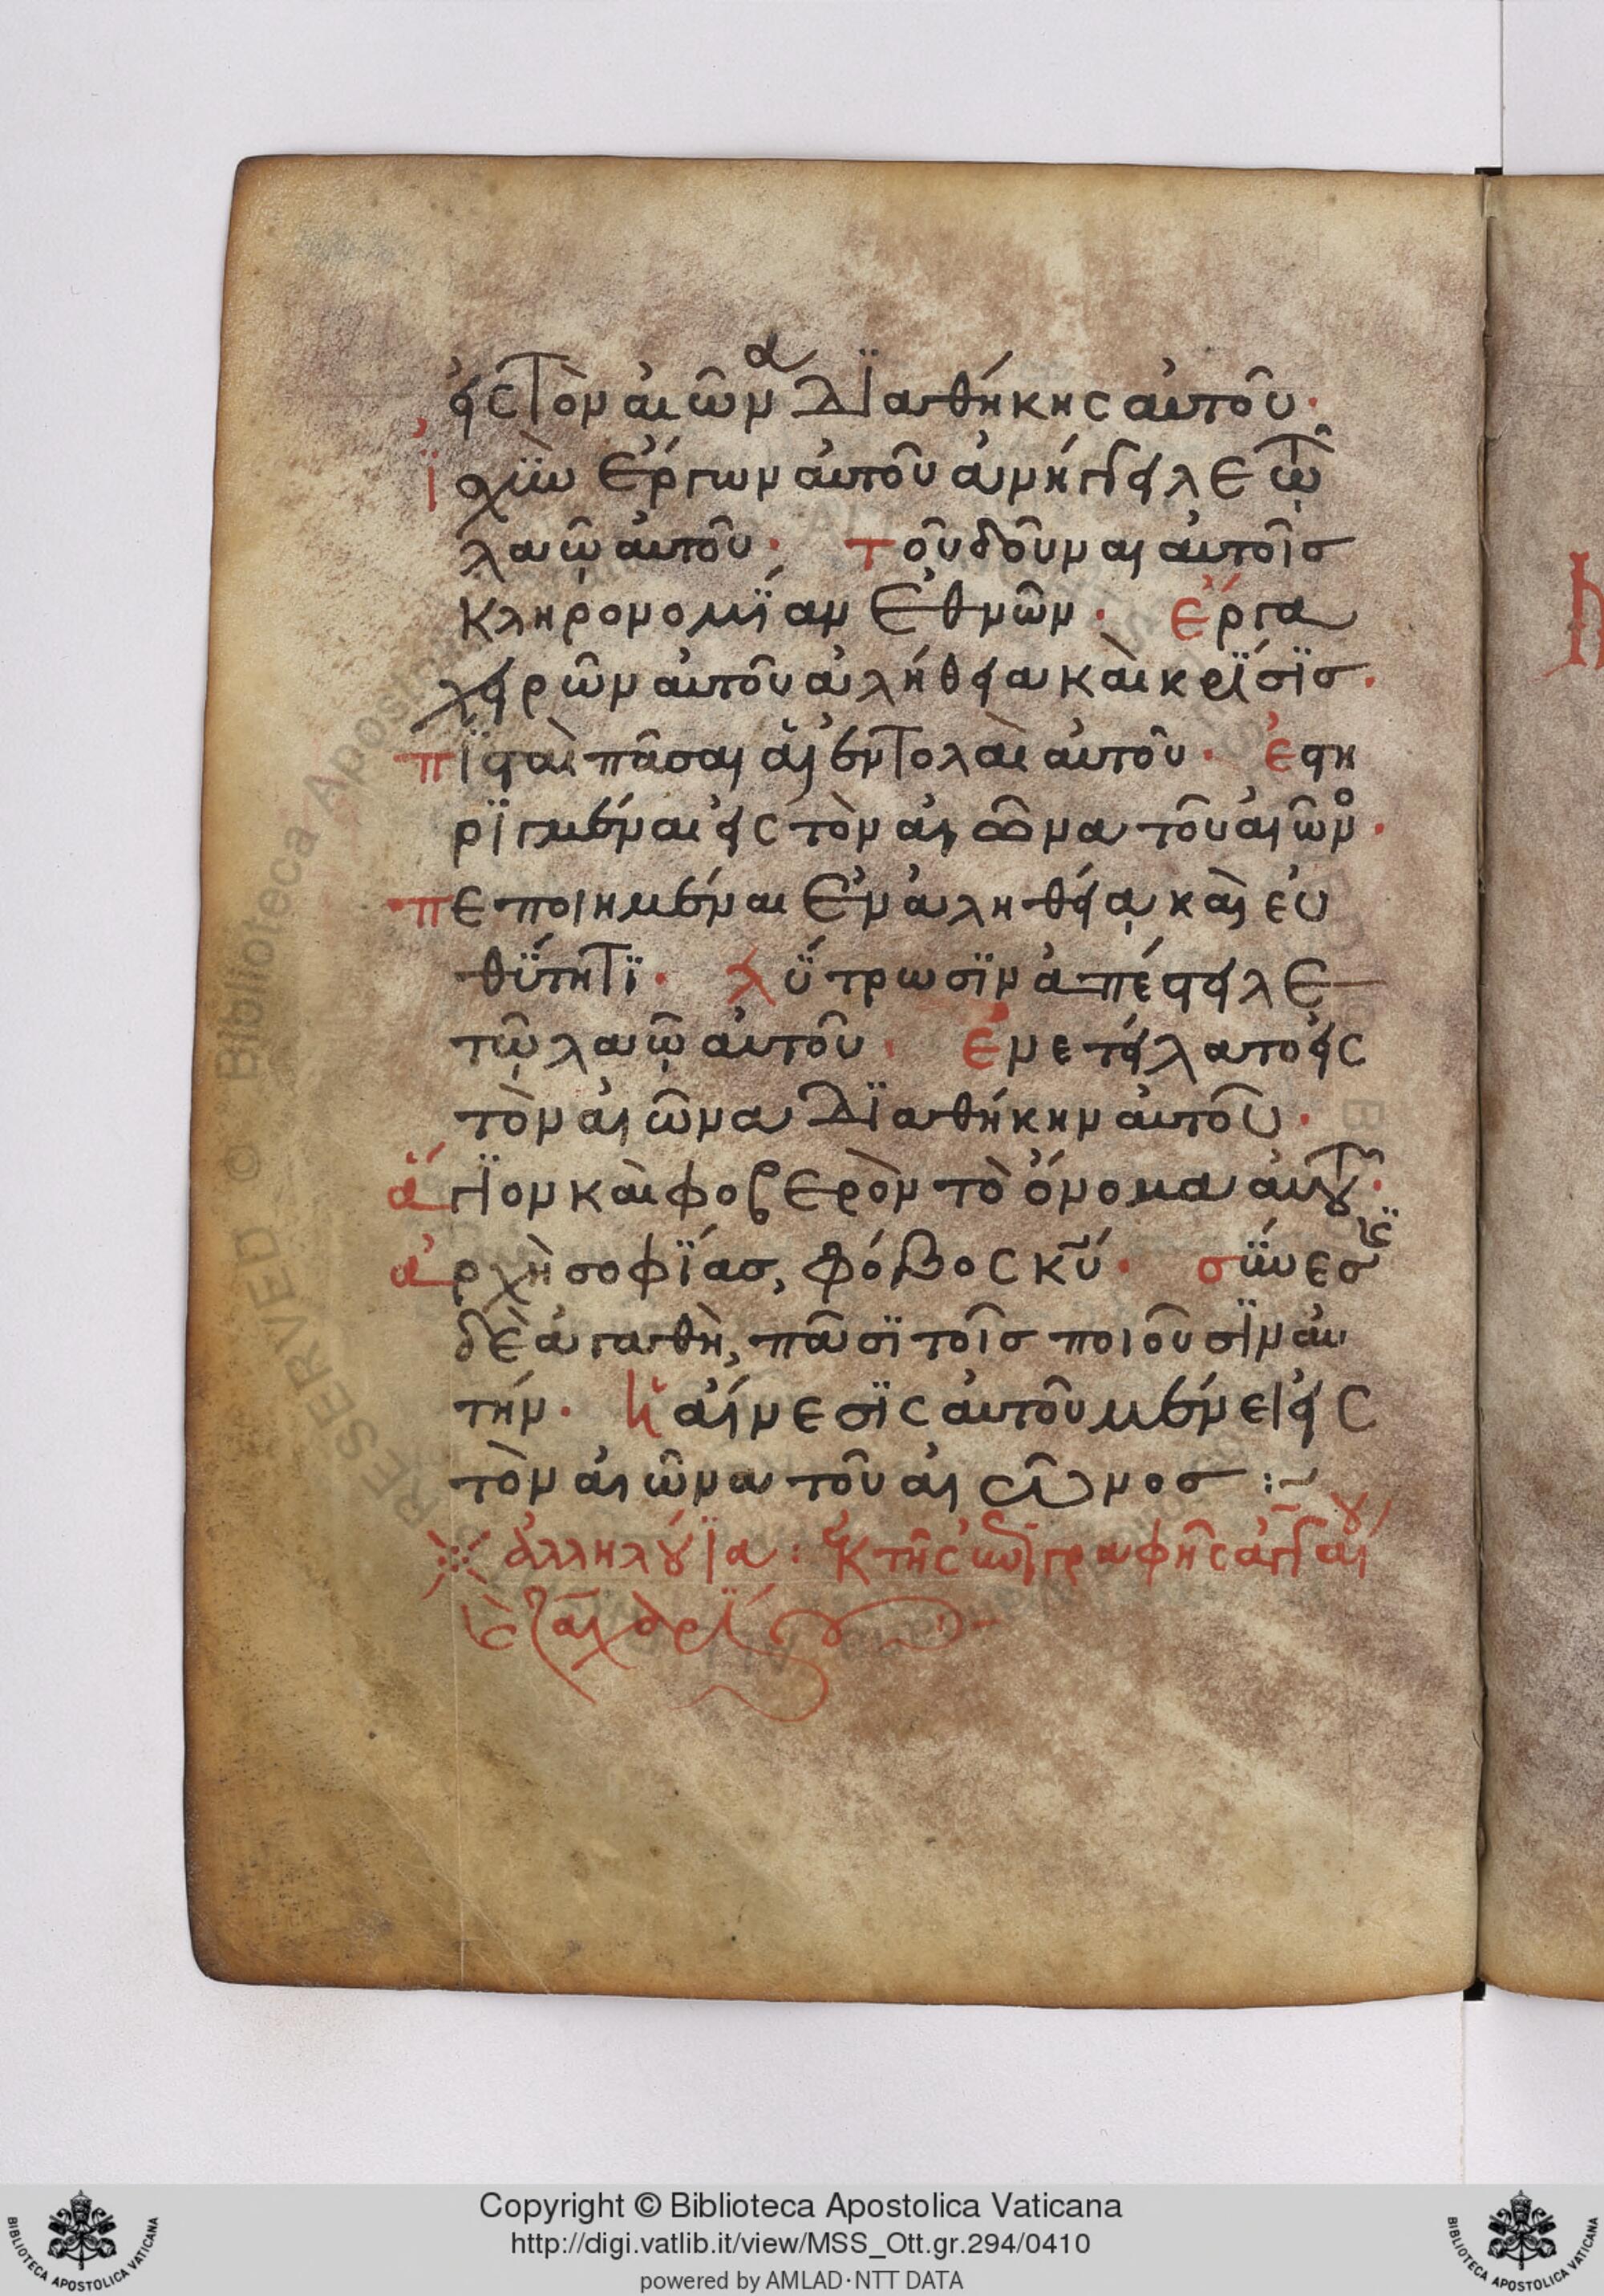 εἰς τὸν αἰῶνα διαθήκης αὐτοῦ·
ἰσχὺν ἔργων αὐτοῦ ἀνήγγειλε τῶ
λαῶ αὐτοῦ· τοῦ δοῦναι αὐτοῖς
κληρονομΐαν ἐθνῶν· ἔργα
χειρῶν αὐτοῦ ἀλήθεια καὶ κρΐσϊς·
πϊσταὶ πᾶσαι αἱ ἐντολαὶ αὐτοῦ· ἐστη
ρϊγμέναι εἰς τὸν αἰῶνα τοῦ αἰῶνο
πεποιημέναι ἐν ἀληθεία καὶ εὐ
θΰτητϊ· λΰτρωσϊν ἀπέστειλε
τῶ λαῶ αὐτοῦ· ἐνετείλατο εἰς
τὸν αἰῶνα δϊαθήκην αὐτοῦ·
ἅγϊον καὶ φοβερὸν τὸ ὄνομα αὐτοῦ·
ἀρχὴ σοφΐας, φόβος κῡ· σύνεσις
δὲ ἀγαθὴ, πᾶσϊ τοῖς ποιοῦσϊν αὐ
τήν· ἡ αἴνεσϊς αὐτοῦ μένει εἰς
τὸν αἰῶνα τοῦ αἰῶνος :~
ἀλληλούϊα: ἐκ τῆς ἐπϊγραφῆς ἀγγαίου
καὶ ζαχαρΐου
Copyright © Biblioteca Apostolica Vaticana
http://digi.vatlib.it/view/MSS_Ott.gr.294/0410
powered by AMLAD·NTT DATA
BIBLIOTECA APOSTOLICA VATICANA
BIBLIOTECA APOSTOLICA VATICANA